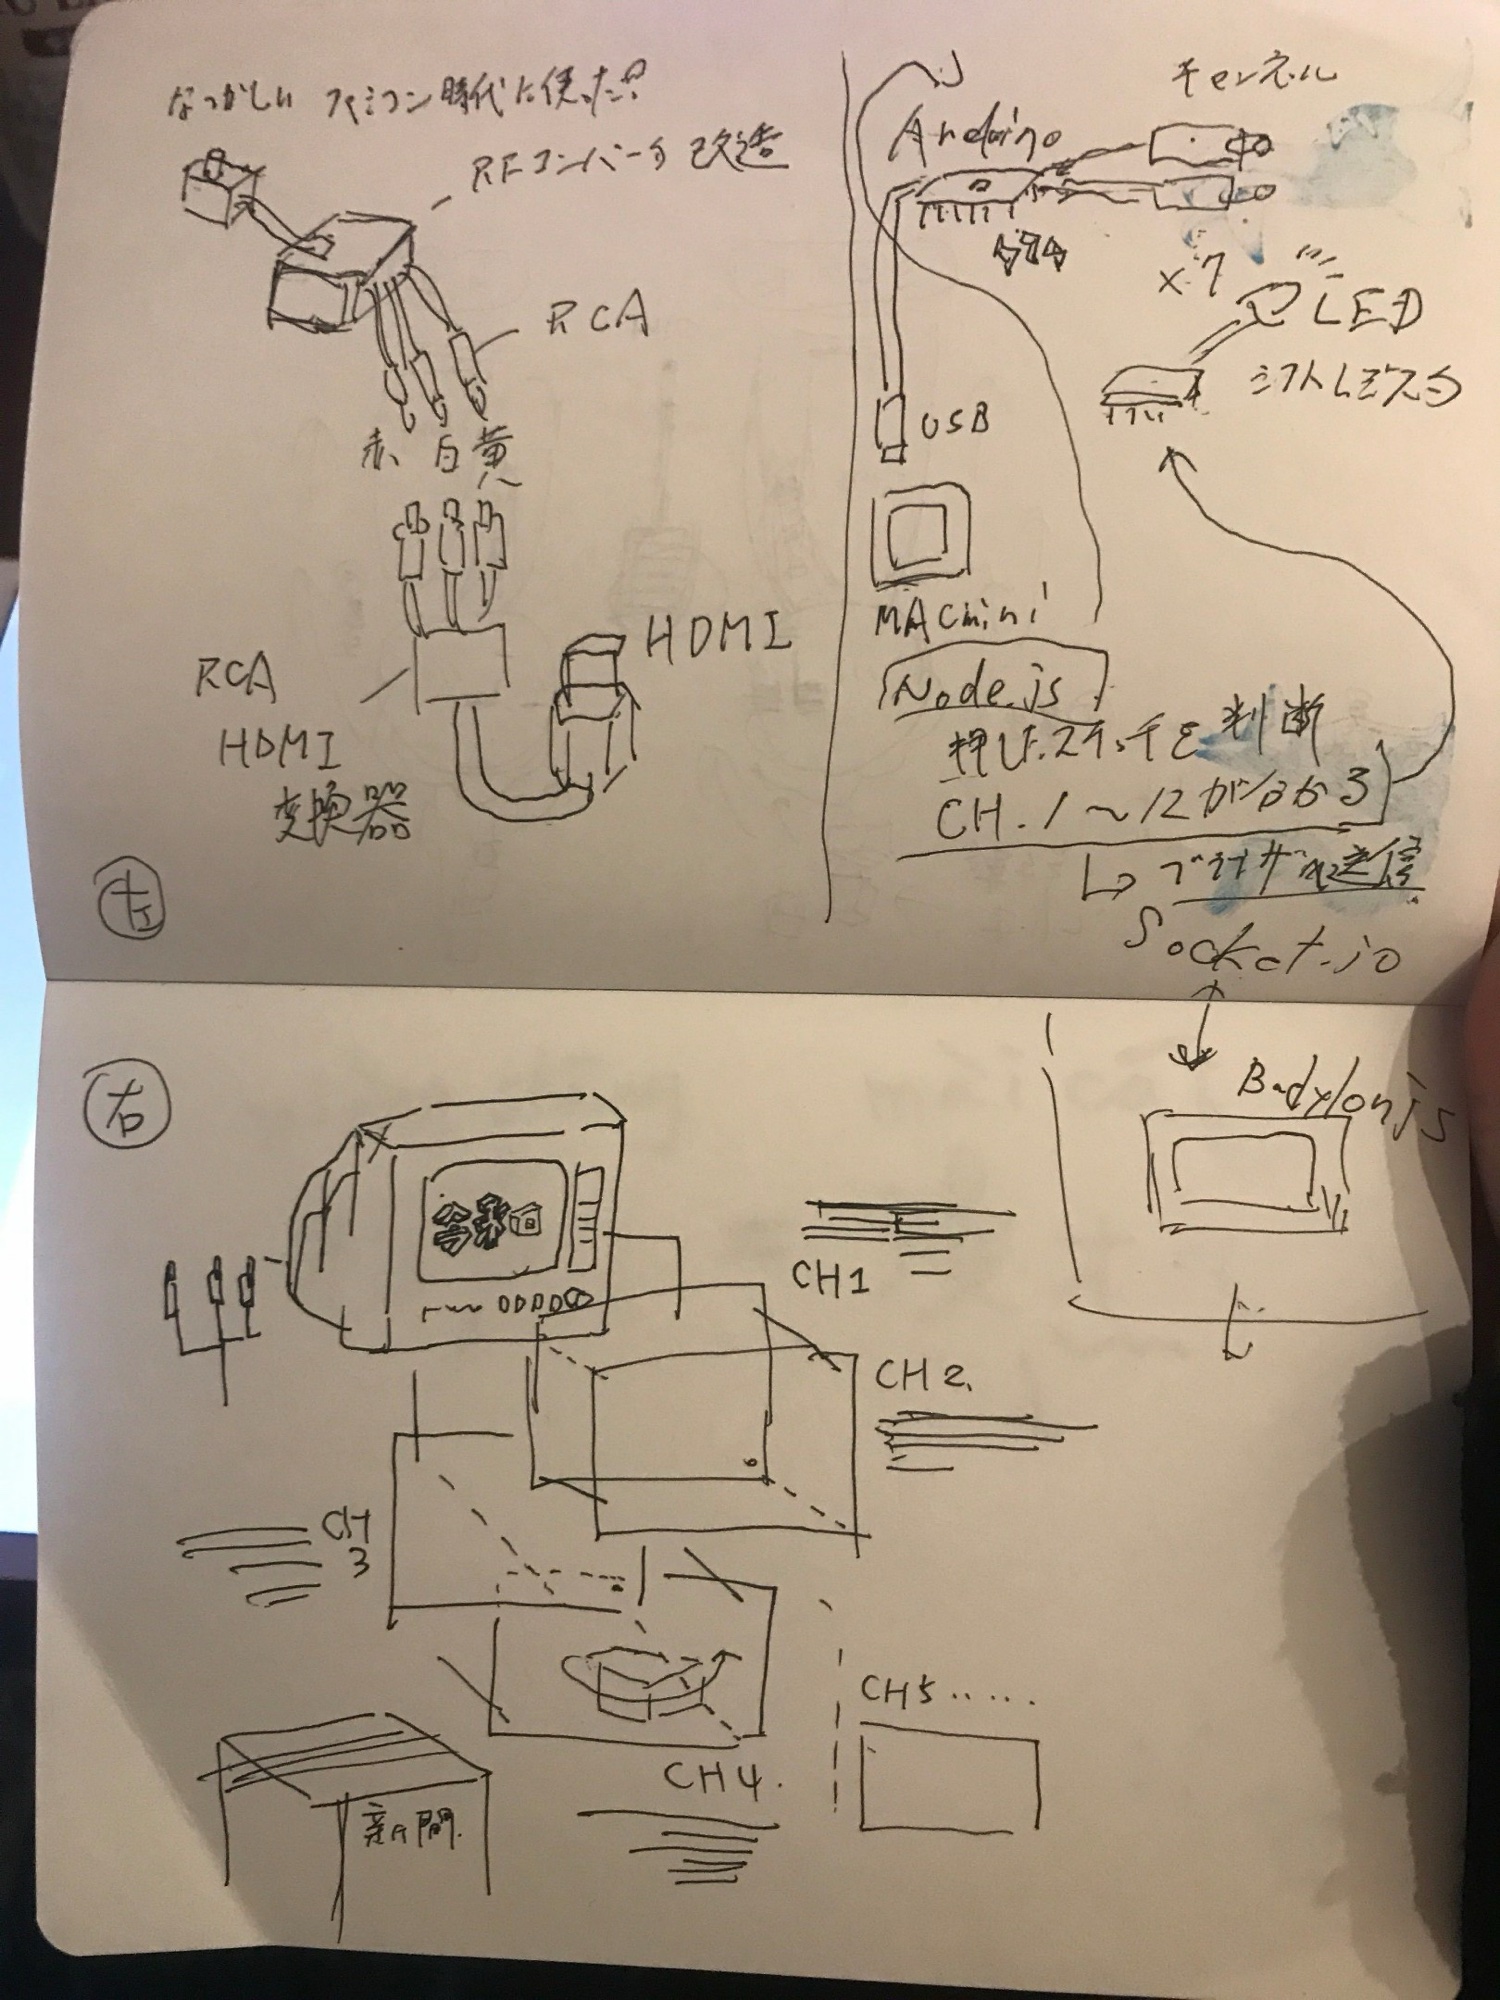 なつかしい ファミコン時代に使った?
RFコンバータ改造
RCA
赤 白 黄
RCA
HDMI
変換器
HDMI
左
チャンネル
Arduino
×7
LED
シフトレジスタ
USB
MACmini
Node.js
押したスイッチを判断
CH.1〜12が分かる
ブラウザへ送信
Socket.io
右
Badylonjs
CH1
CH2.
CH
3
CH4.
CH5......
新聞.